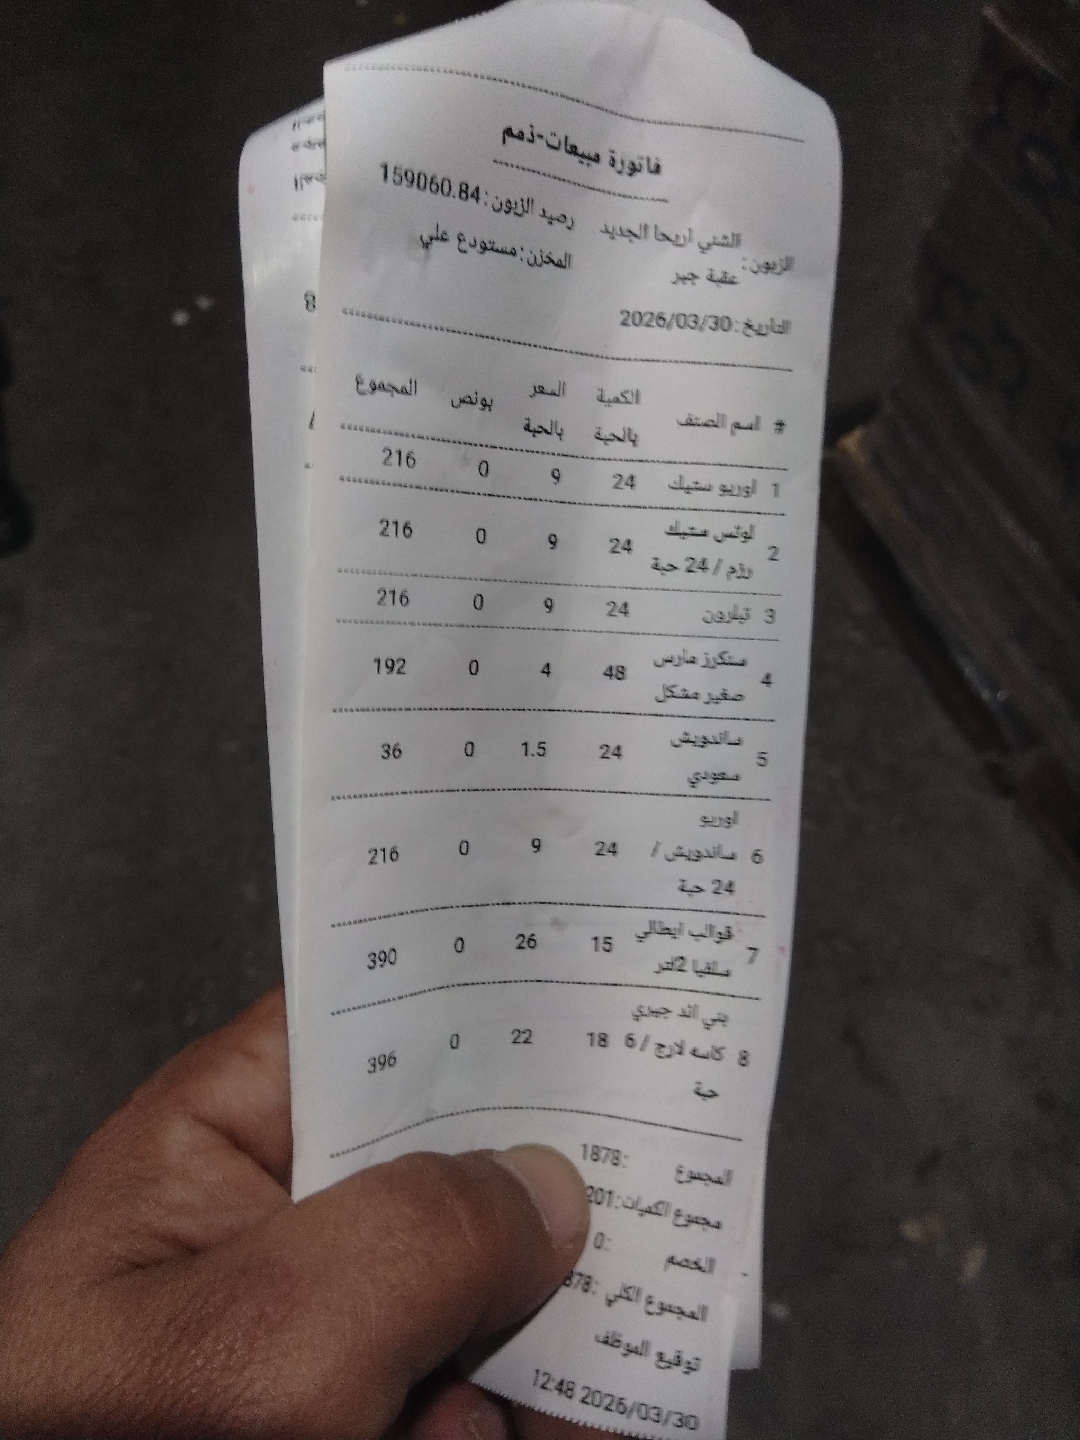 فاتورة مبيعات-ذمم
الزبون: الشني اريحا الجديد رصيد الزبون: 159060.84
عقبة جبر المخزن: مستودع علي
التاريخ: 2026/03/30
# اسم الصنف الكمية بالحبة السعر بالحبة بونص المجموع
1 اوريو ستيك 24 9 0 216
2 لوتس ستيك 24 9 0 216
رزم / 24 حبة
3 تبلرون 24 9 0 216
4 سنكرز مارس 48 4 0 192
صغير مشكل
5 ساندويش 24 1.5 0 36
سعودي
اوريو
6 ساندويش / 24 9 0 216
24 حبة
7 قوالب ايطالي 15 26 0 390
سلفيا 2لتر
بني اند جيري
8 كاسه لارج / 6 18 22 0 396
حبة
المجموع :1878
مجموع الكميات :201
الخصم :0
المجموع الكلي :
توقيع الموظف
12:48 2026/03/30